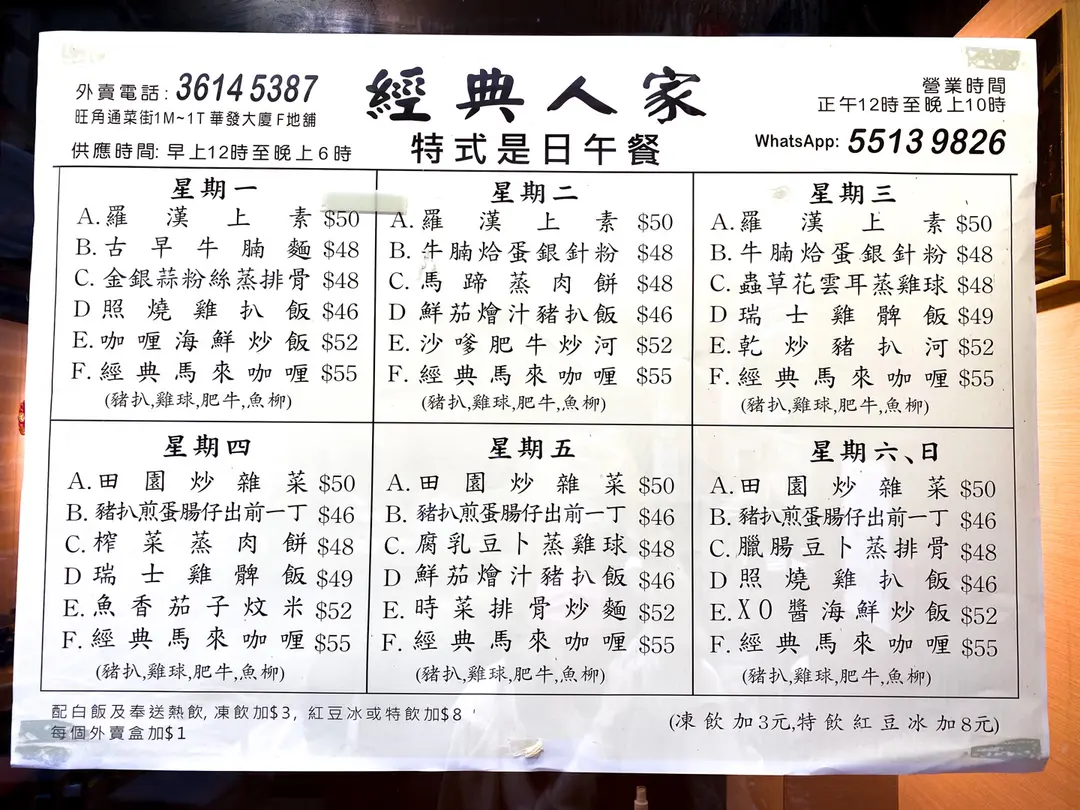 外賣電話: 3614 5387
旺角通菜街1M~1T 華發大廈 F地舖
供應時間: 早上12時至晚上6時
經典人家
特式是日午餐
營業時間
正午12時至晚上10時
WhatsApp: 5513 9826
星期一
A.羅漢上素 $50
B.古早牛腩麵 $48
C.金銀蒜粉絲蒸排骨 $48
D照燒雞扒飯 $46
E.咖喱海鮮炒飯 $52
F.經典馬來咖喱 $55
(豬扒,雞球,肥牛,魚柳)
星期二
A.羅漢上素 $50
B.牛腩烚蛋銀針粉 $48
C.馬蹄蒸肉餅 $48
D鮮茄燴汁豬扒飯 $46
E.沙嗲肥牛炒河 $52
F.經典馬來咖喱 $55
(豬扒,雞球,肥牛,魚柳)
星期三
A.羅漢上素 $50
B.牛腩烚蛋銀針粉 $48
C.蟲草花雲耳蒸雞球 $48
D瑞士雞髀飯 $49
E.乾炒豬扒河 $52
F.經典馬來咖喱 $55
(豬扒,雞球,肥牛,魚柳)
星期四
A.田園炒雜菜 $50
B.豬扒煎蛋腸仔出前一丁 $46
C.榨菜蒸肉餅 $48
D瑞士雞髀飯 $49
E.魚香茄子炆米 $52
F.經典馬來咖喱 $55
(豬扒,雞球,肥牛,魚柳)
星期五
A.田園炒雜菜 $50
B.豬扒煎蛋腸仔出前一丁 $46
C.腐乳豆卜蒸雞球 $48
D鮮茄燴汁豬扒飯 $46
E.時菜排骨炒麵 $52
F.經典馬來咖喱 $55
(豬扒,雞球,肥牛,魚柳)
星期六、日
A.田園炒雜菜 $50
B.豬扒煎蛋腸仔出前一丁 $46
C.臘腸豆卜蒸排骨 $48
D照燒雞扒飯 $46
E.XO醬海鮮炒飯 $52
F.經典馬來咖喱 $55
(豬扒,雞球,肥牛,魚柳)
配白飯及奉送熱飲, 凍飲加$3, 紅豆冰或特飲加$8
每個外賣盒加$1
(凍飲加3元,特飲紅豆冰加8元)